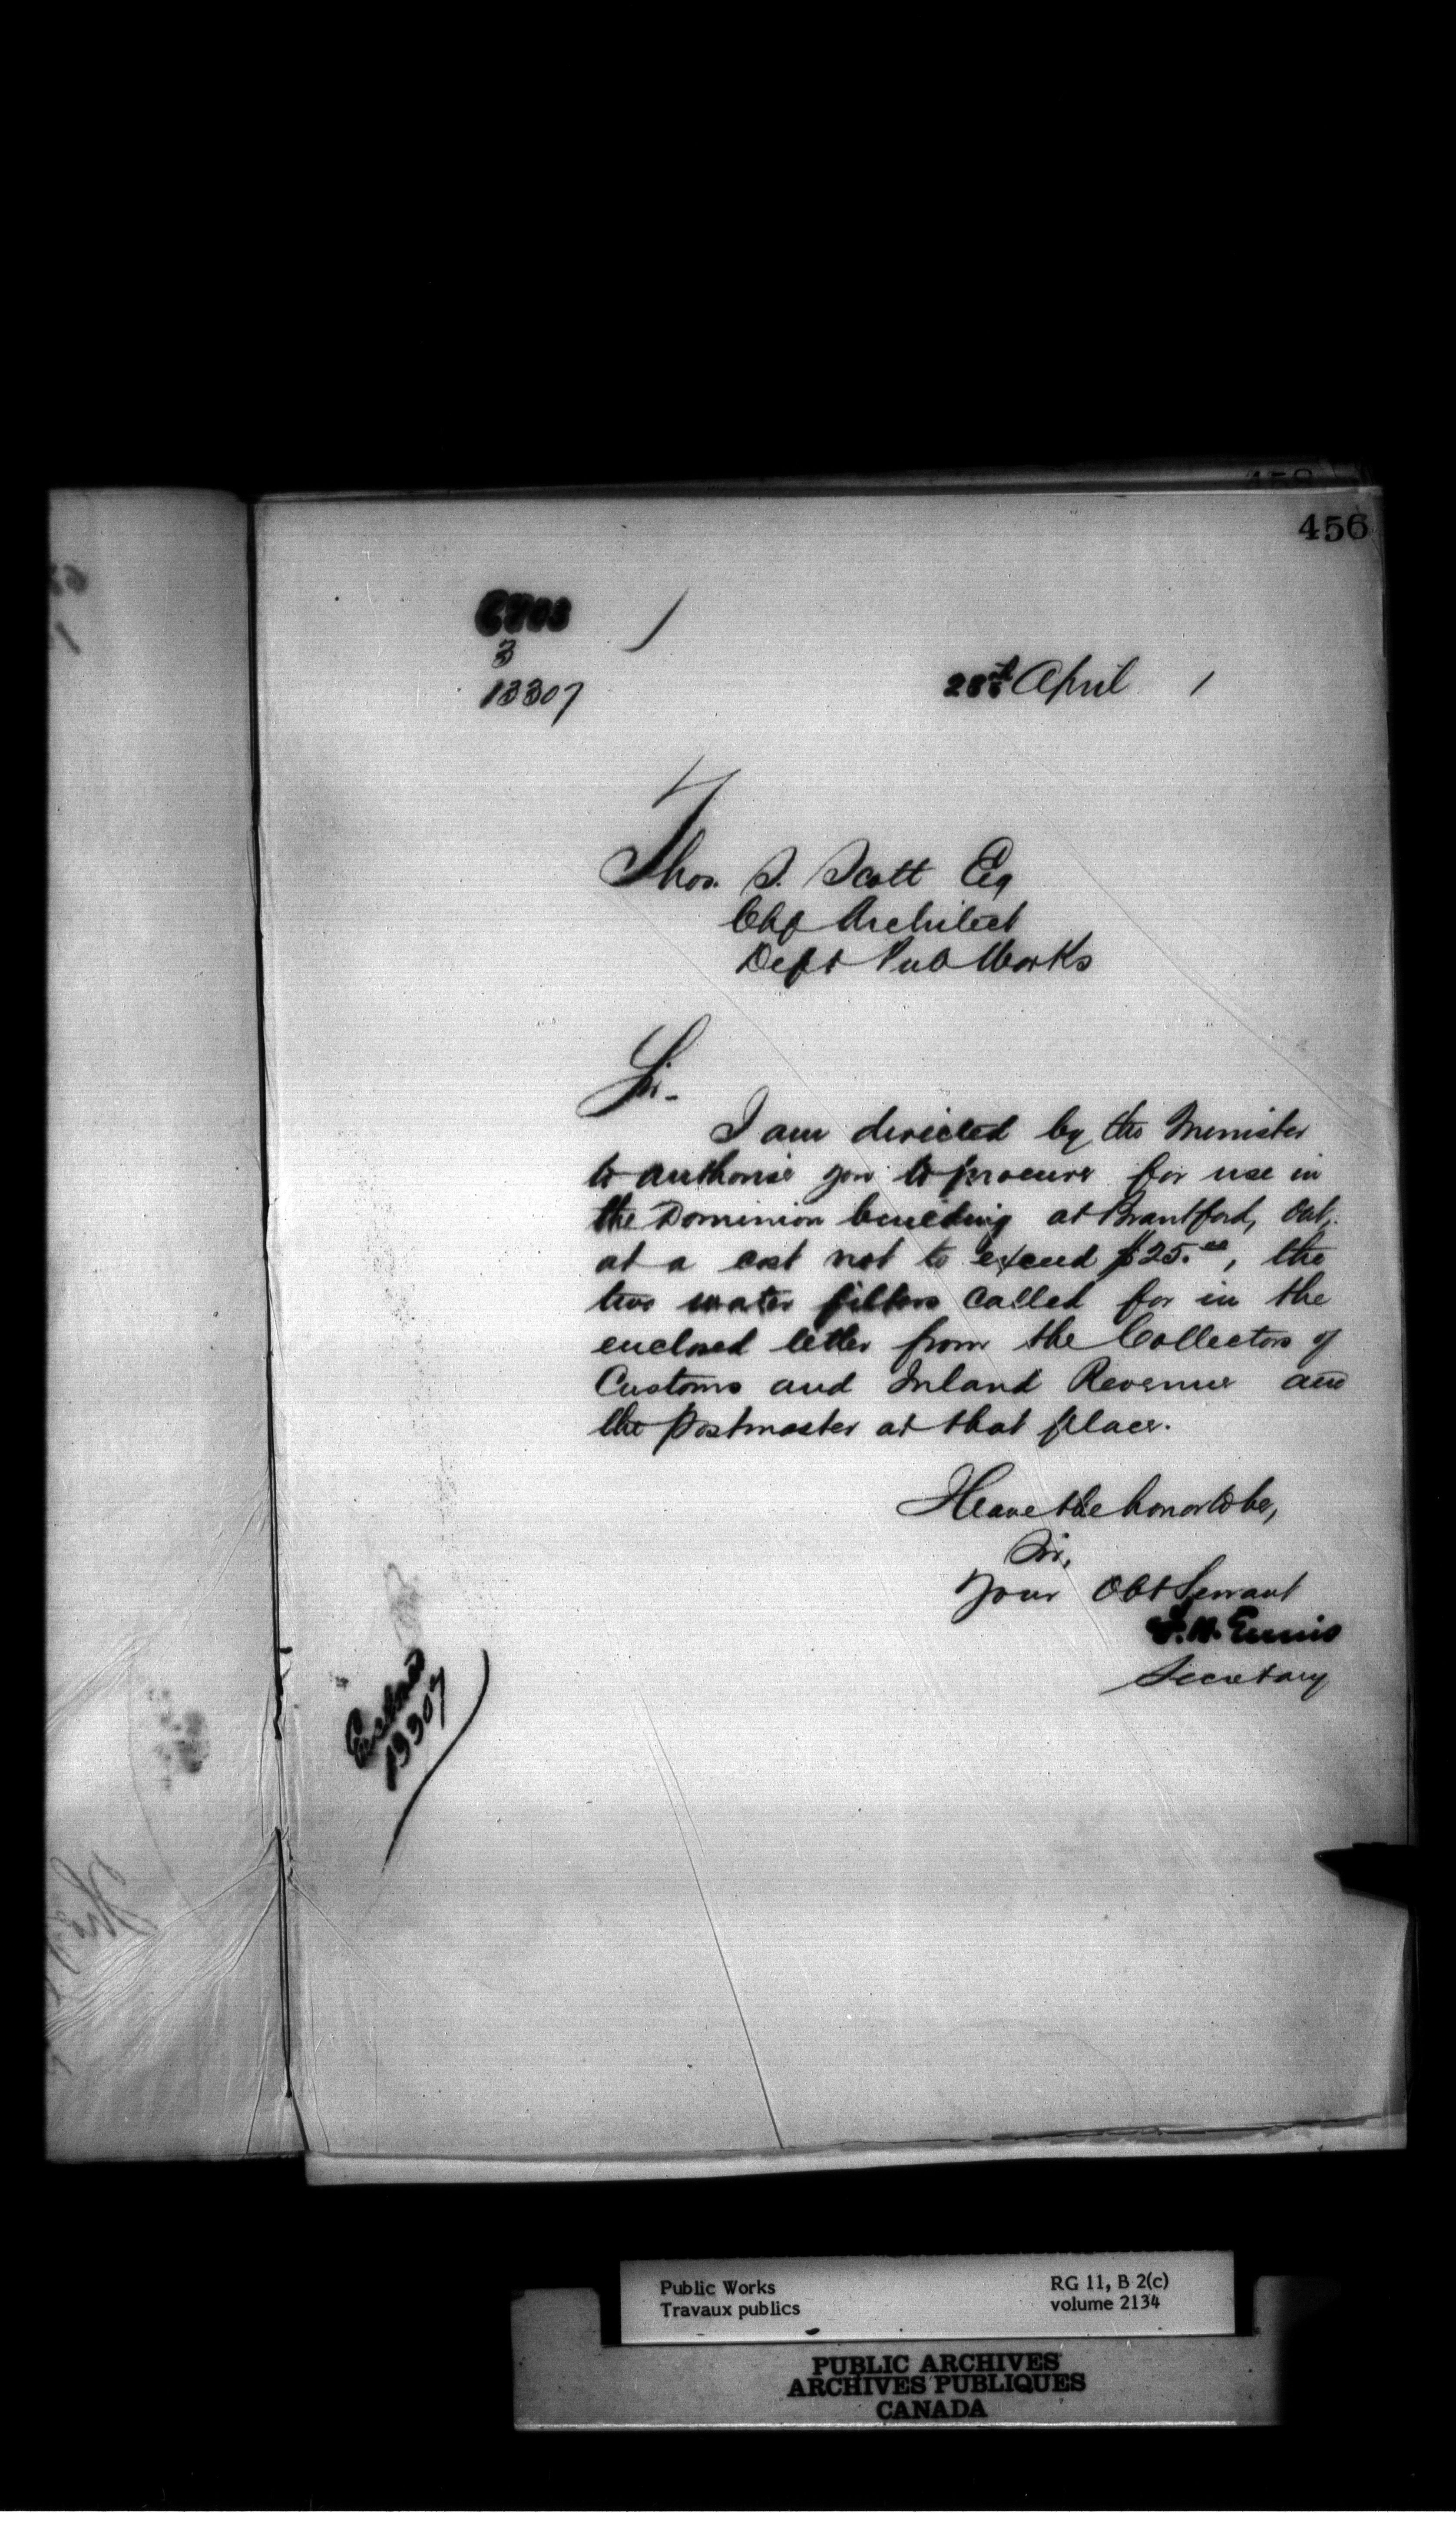 456
3
13307
28th April 1
Thos. S. Scott Esq
Chf Architect
Dept Pub Works
Sir.
I am directed by the Minister
to authorise you to procure for use in
the Dominion building at Brantford, Ont,
at a cost not to exceed $25.00, the
two water filters called for in the
enclosed letter from the Collectors of
Customs and Inland Revenue and
the Postmaster at that place.
I have the honor to be,
Sir,
Your Obt Servant
F. H. Ennis
Secretary
Enclosed
13307
Public Works
Travaux publics
RG 11, B 2(c)
volume 2134
PUBLIC ARCHIVES
ARCHIVES PUBLIQUES
CANADA